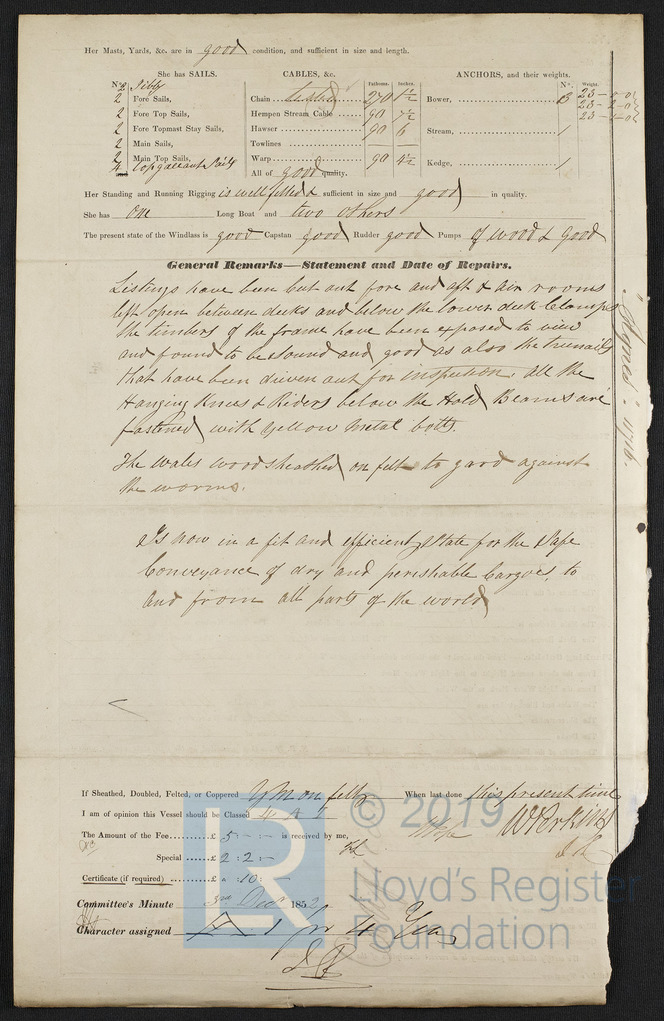 Her Masts, Yards, &c. are in good condition, and sufficient in size and length.
She has SAILS. CABLES, &c. Fathoms. Inches. ANCHORS, and their weights. Nº. Weight.
Nº.
2 Jibbs
2 Fore Sails, Chain tested 270 1½ Bower, 3 23-0-0
2 Fore Top Sails, Hempen Stream Cable 90 7½ 23-2-0
2 Fore Topmast Stay Sails, Hawser 90 6 Stream, 1
2 Main Sails, Towlines
2 Main Top Sails, Warp 90 4½ Kedge, 1
Topgallant Sails All of good quality.
Her Standing and Running Rigging is well fitted & sufficient in size and good in quality.
She has One Long Boat and two others
The present state of the Windlass is good Capstan good Rudder good Pumps of wood & good
General Remarks—Statement and Date of Repairs.
Listings have been cut out fore and aft & air rooms
left open between decks and below the lower deck Clamps
the timbers of the frame have been exposed to view
and found to be sound and good as also the trenails
that have been driven out for inspection. all the
Hanging Knees & Riders below the Hold Beams are
fastened with Yellow Metal bolts.
The Wales wood sheathed on felt to gard against
the worms.
Is now in a fit and efficient State for the Safe
Conveyance of dry and perishable Cargoes, to
and from all parts of the world
"Agnes" 1176.
If Sheathed, Doubled, Felted, or Coppered YM on felt When last done this present time
I am of opinion this Vessel should be Classed 4 A 1
The Amount of the Fee £ 5 : - : - is received by me,
W Perkins
Special £ 2 : 2 : -
Certificate (if required) £ " : 10 : -
Committee's Minute 3rd Decr 1852
Character assigned A 1 for 4 Years
© 2019
LR
Lloyd's Register
Foundation